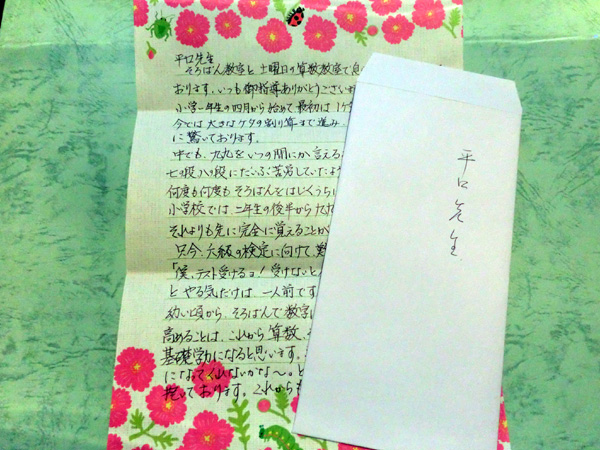 平口先生
そろばん教室と土曜日の算数教室で
おります。いつも御指導ありがとうござい
小学一年生の四月から始めて最初は1ケタ
今では大きなケタの割り算まで進み
に驚いております。
中でも、九九をいつの間にか言える
七の段八の段にだいぶ苦労していたよう
何度も何度もそろばんをはじくうちに
小学校では、二年生の後半から九九
それよりも先に完全に覚えることが
只今、六級の検定に向けて
「僕、テスト受けるョ!受けないと
とやる気だけは、一人前です
幼い頃から、そろばんで数字に
高めることは、これから算数、
基礎学力になると思います。
になってくれないかな〜。と
おります。これからも
平口先生